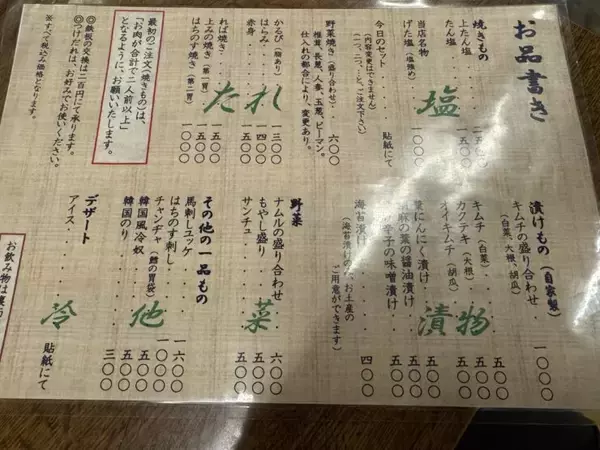 お品書き
焼きもの
塩
上たん塩
たん塩
一五〇〇
当店名物
げた塩（塩強め）
今日のセット
（内容変更はできません）
（一つ、二つ、…とご注文下さい）
貼紙にて
野菜焼き（盛り合わせ）
六〇〇
椎茸、長葱、人参、玉葱、ピーマン。
仕入れの都合により、変更あり。
たれ
かるび（脂あり）
一三〇〇
はらみ
一四〇〇
赤身
一五〇〇
ればー焼き
上みの焼き（第一胃）
一五〇〇
はちのす焼き（第二胃）
一〇〇〇
最初のご注文（焼きもの）は、
「お肉が合計で二人前以上」
となるように、お願いいたします。
◎鉄板の交換は二百円にて承ります。
◎つけだれは、お好みでお使いください。
※すべて税込み価格となります。
漬けもの（自家製）
漬物
キムチの盛り合わせ
（白菜、大根、胡瓜）
一〇〇〇
キムチ（白菜）
五〇〇
カクテキ（大根）
五〇〇
オイキムチ（胡瓜）
五〇〇
葉にんにく漬け
五〇〇
胡麻の葉の醤油漬け
五〇〇
辛子の味噌漬け
五〇〇
海苔漬け
四〇〇
（海苔漬けのみ、お土産の
ご用意ができます）
野菜
菜
ナムルの盛り合わせ
六〇〇
もやし盛り
五〇〇
サンチュ
五〇〇
その他の一品もの
他
馬刺しユッケ
一六〇〇
はちのす刺し
一〇〇〇
チャンヂャ（鱈の胃袋）
五〇〇
韓国風冷奴
五〇〇
韓国のり
三〇〇
デザート
冷
アイス
貼紙にて
お飲み物は裏